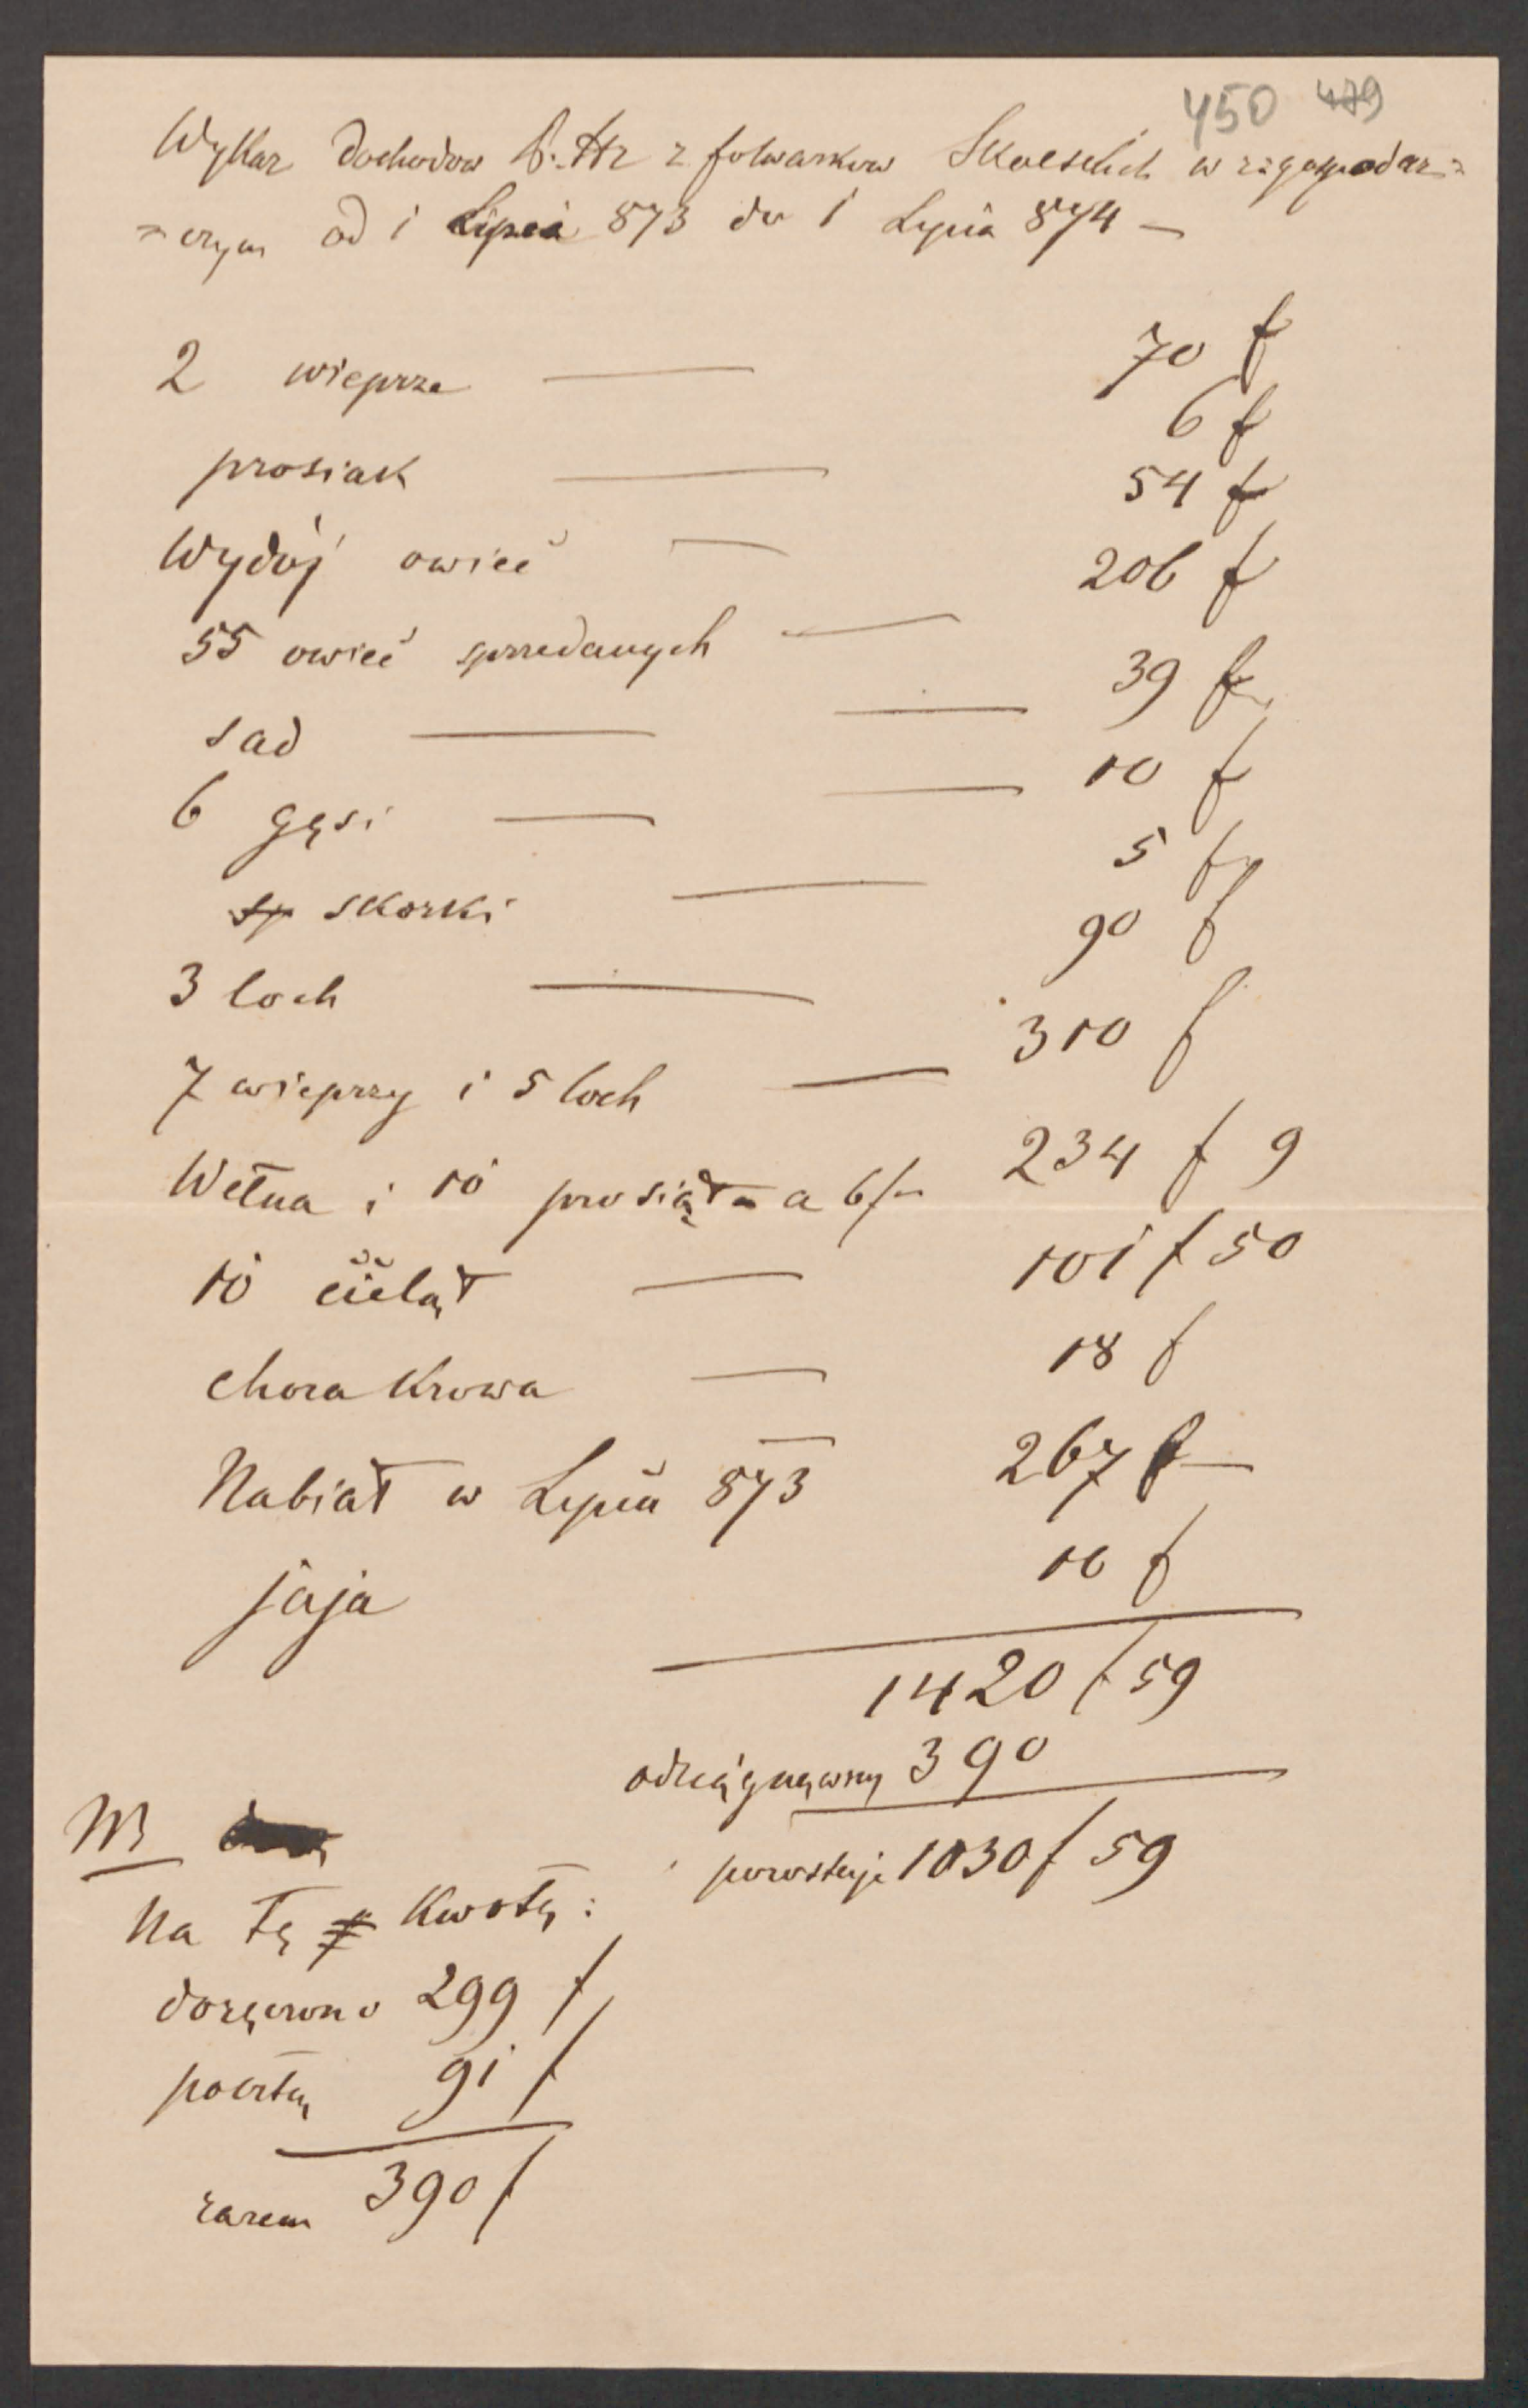 450 479
Wykaz dochodów z folwarków w r: gospodar=
=czym od 1 Lipca 873 do 1 Lipca 874 —
2 wieprze — 70 f
prosiak — 6 f
Wydój owiec — 54 f
55 owiec sprzedanych — 206 f
sad — — 39 f
6 gęsi — — 10 f
sp skorki — 5 f
3 loch — 90 f
7 wieprzy i 5 loch — 310 f
Wełna i 10 prosiąt a 6 f 234 f 9
10 cieląt — 101 f 50
chora Krowa — 18 f
Nabiał w Lipcu 873 — 267 f —
jaja 10 f
1420 f 59
odciągnąwszy 390
pozostaje 1030 f 59
NB
Na tę Kwotę:
doręczono 299 f
pocztą 91 f
razem 390 f